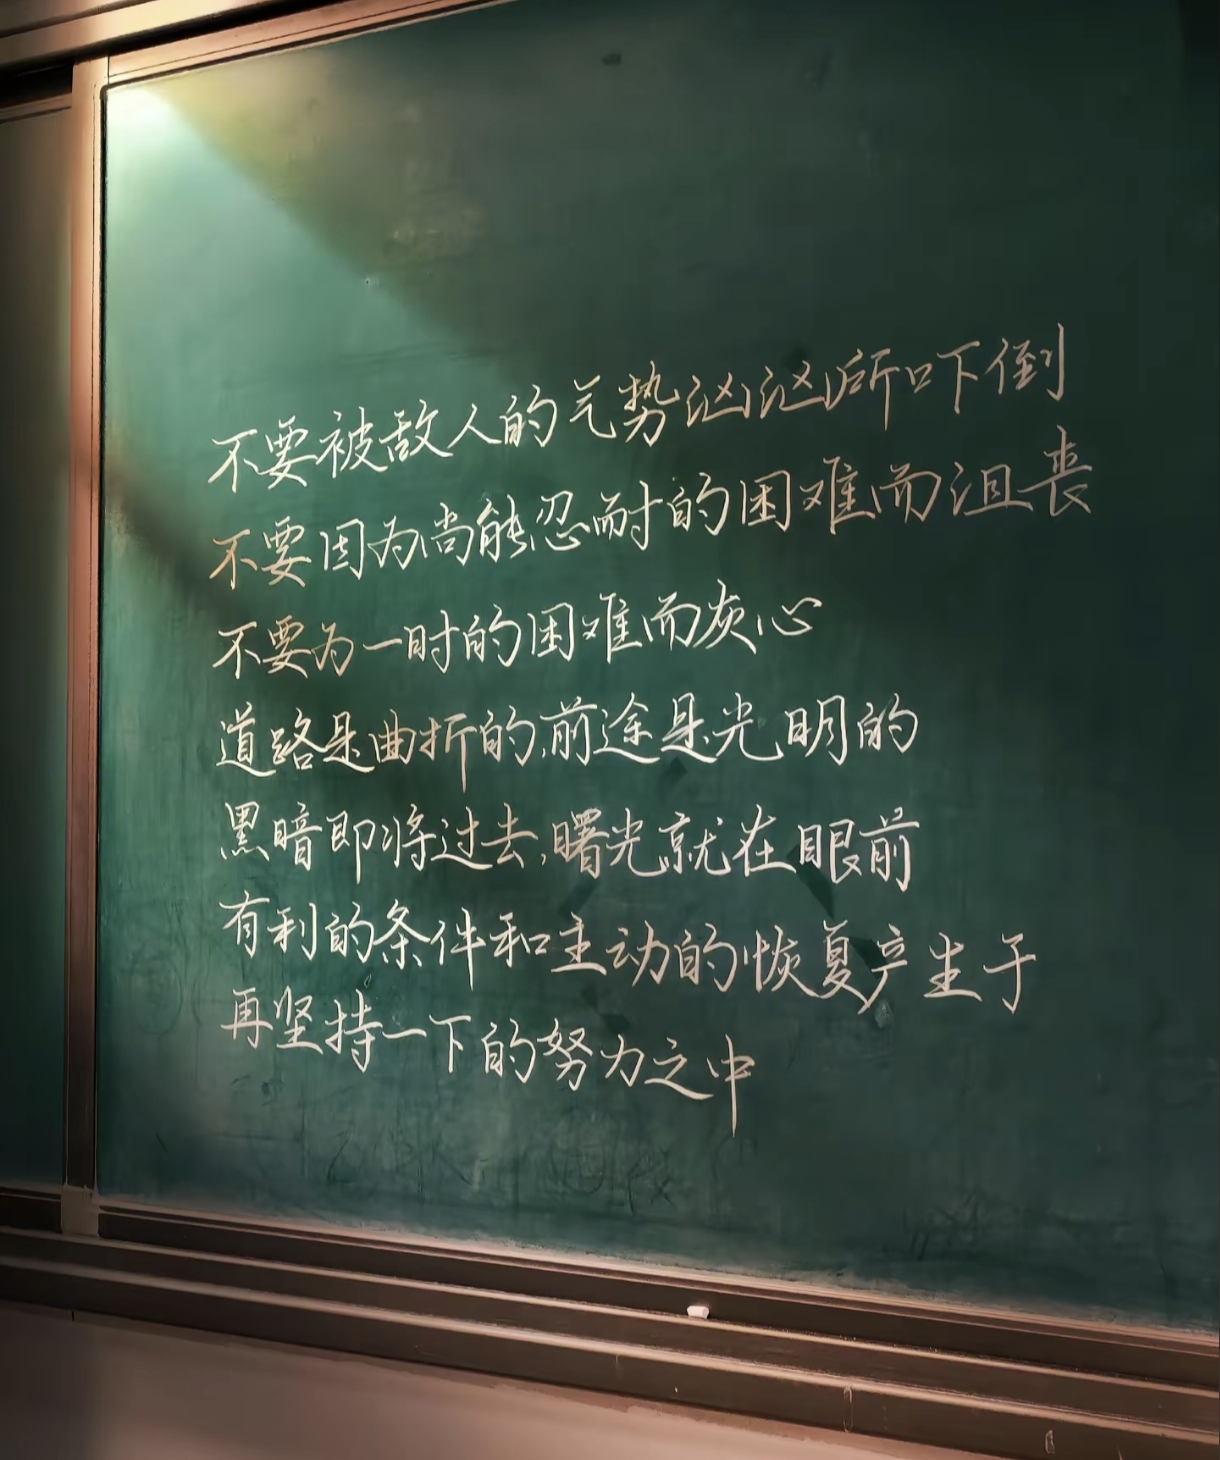 不要被敌人的气势汹汹所吓倒
不要因为尚能忍耐的困难而沮丧
不要为一时的困难而灰心
道路是曲折的,前途是光明的
黑暗即将过去,曙光就在眼前
有利的条件和主动的恢复产生于
再坚持一下的努力之中